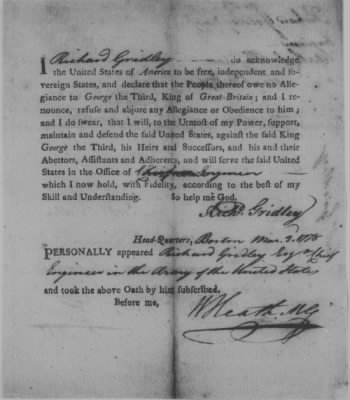 I Richard Gridley do acknowledge
the United States of America to be free, independent and so-
vereign States, and declare that the People thereof owe no Alle-
giance to George the Third, King of Great-Britain; and I re-
nounce, refuse and abjure any Allegiance or Obedience to him;
and I do swear, that I will, to the Utmost of my Power, support,
maintain and defend the said United States, against the said King
George the Third, his Heirs and Successors, and his and their
Abettors, Assistants and Adherents, and will serve the said
United States in the Office of Engineer
which I now hold, with Fidelity, according to the best of my
Skill and Understanding. So help me God.
Richd. Gridley
Head-Quarters, Boston Mar. 1778
PERSONALLY appeared Richard Gridley Esqr Chief
Engineer in the Army of the United States
and took the above Oath by him subscribed.
Before me,
W Heath M.G.